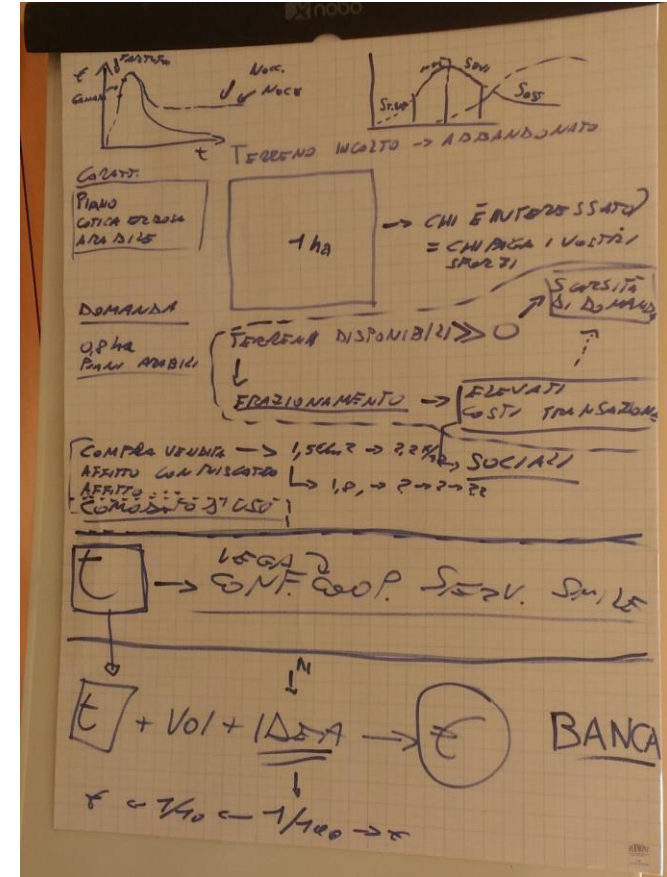 nobo
€
TARTUFO
NOCC.
NOCE
t
SOST
TERRENO INCOLTO → ABBANDONATO
CARATT.
PIANO
COTICA ERBOSA
ARABILE
1 ha
→ CHI È INTERESSATO
= CHI PAGA I VOSTRI
SFORZI
DOMANDA
0,8 ha
PIANI ARABILI
TERRENI DISPONIBILI >> 0
SCARSITÀ
DI DOMANDA
↓
FRAZIONAMENTO → ELEVATI
COSTI TRANSAZIONE
SOCIALI
COMPRA VENDITA →
AFFITTO CON RISCATTO
AFFITTO
COMODATO D'USO
t → LEGA
CONF. COOP. SERV. SMILE
N
t + VOl + IDEA → € BANCA
← 1/10 ← 1/100 →